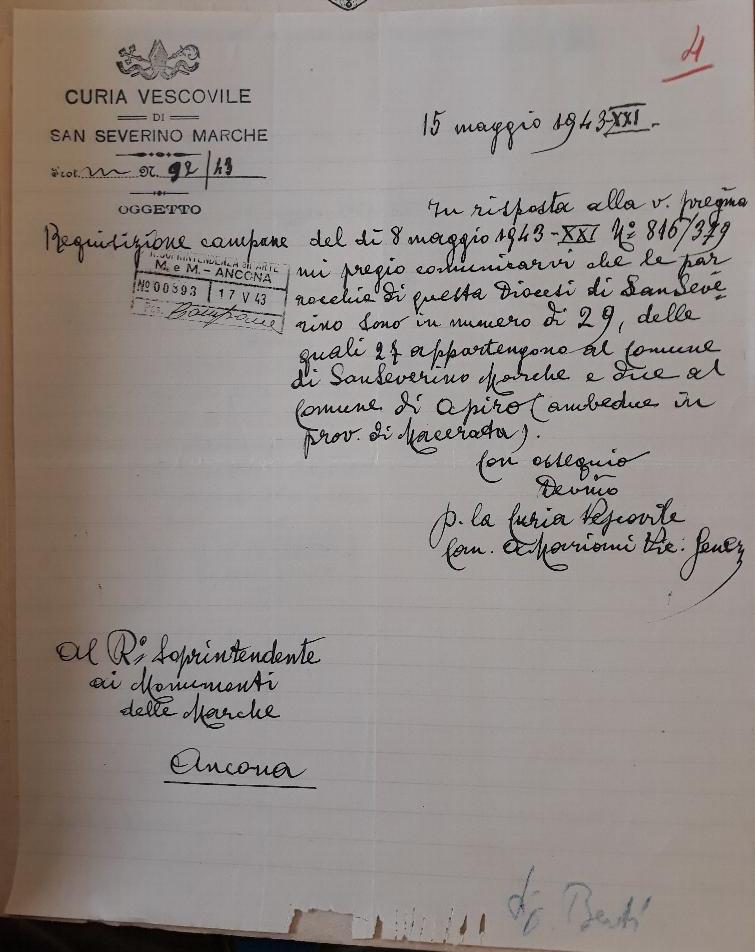 4
CURIA VESCOVILE
DI
SAN SEVERINO MARCHE
Prot. N. 92/43
OGGETTO
Requisizione campane
R. SOPRINTENDENZA ARTE
M. e M. - ANCONA
No 00893 17 V 43
Pos. Campane
15 maggio 1943-XXI.-
In risposta alla v. pregma
del dì 8 maggio 1943-XXI No 816/379
mi pregio comunicarvi che le par
rocchie di questa Diocesi di San Seve=
rino sono in numero di 29, delle
quali 27 appartengono al Comune
di San Severino Marche e due al
Comune di Apiro (ambedue in
prov. di Macerata).
Con ossequio
Devmo
p. la Curia Vescovile
Can. Marioni Vic. Gener
Al R. Soprintendente
ai Monumenti
delle Marche
Ancona
Berti